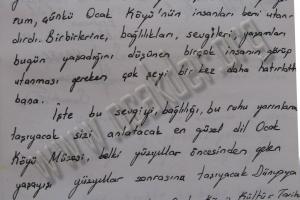 rum, çünkü Ocak Köyü'nün insanları beni utan
dırdı. Birbirlerine, bağlılıkları, sevgileri, yaşamları
bugün yaşadığını düşünen birçok insanın görüp
utanması gereken çok şeyi bir kez daha hatırlattı
bana.
İşte bu sevgiyi, bağlılığı, bu ruhu yarınlara
taşıyacak sizi anlatacak en güzel dil Ocak
Köyü Müzesi, belki yüzyıllar öncesinden gelen
yaşayışı yüzyıllar sonrasına taşıyacak Dünyaya
Köyü Kültür Tarih